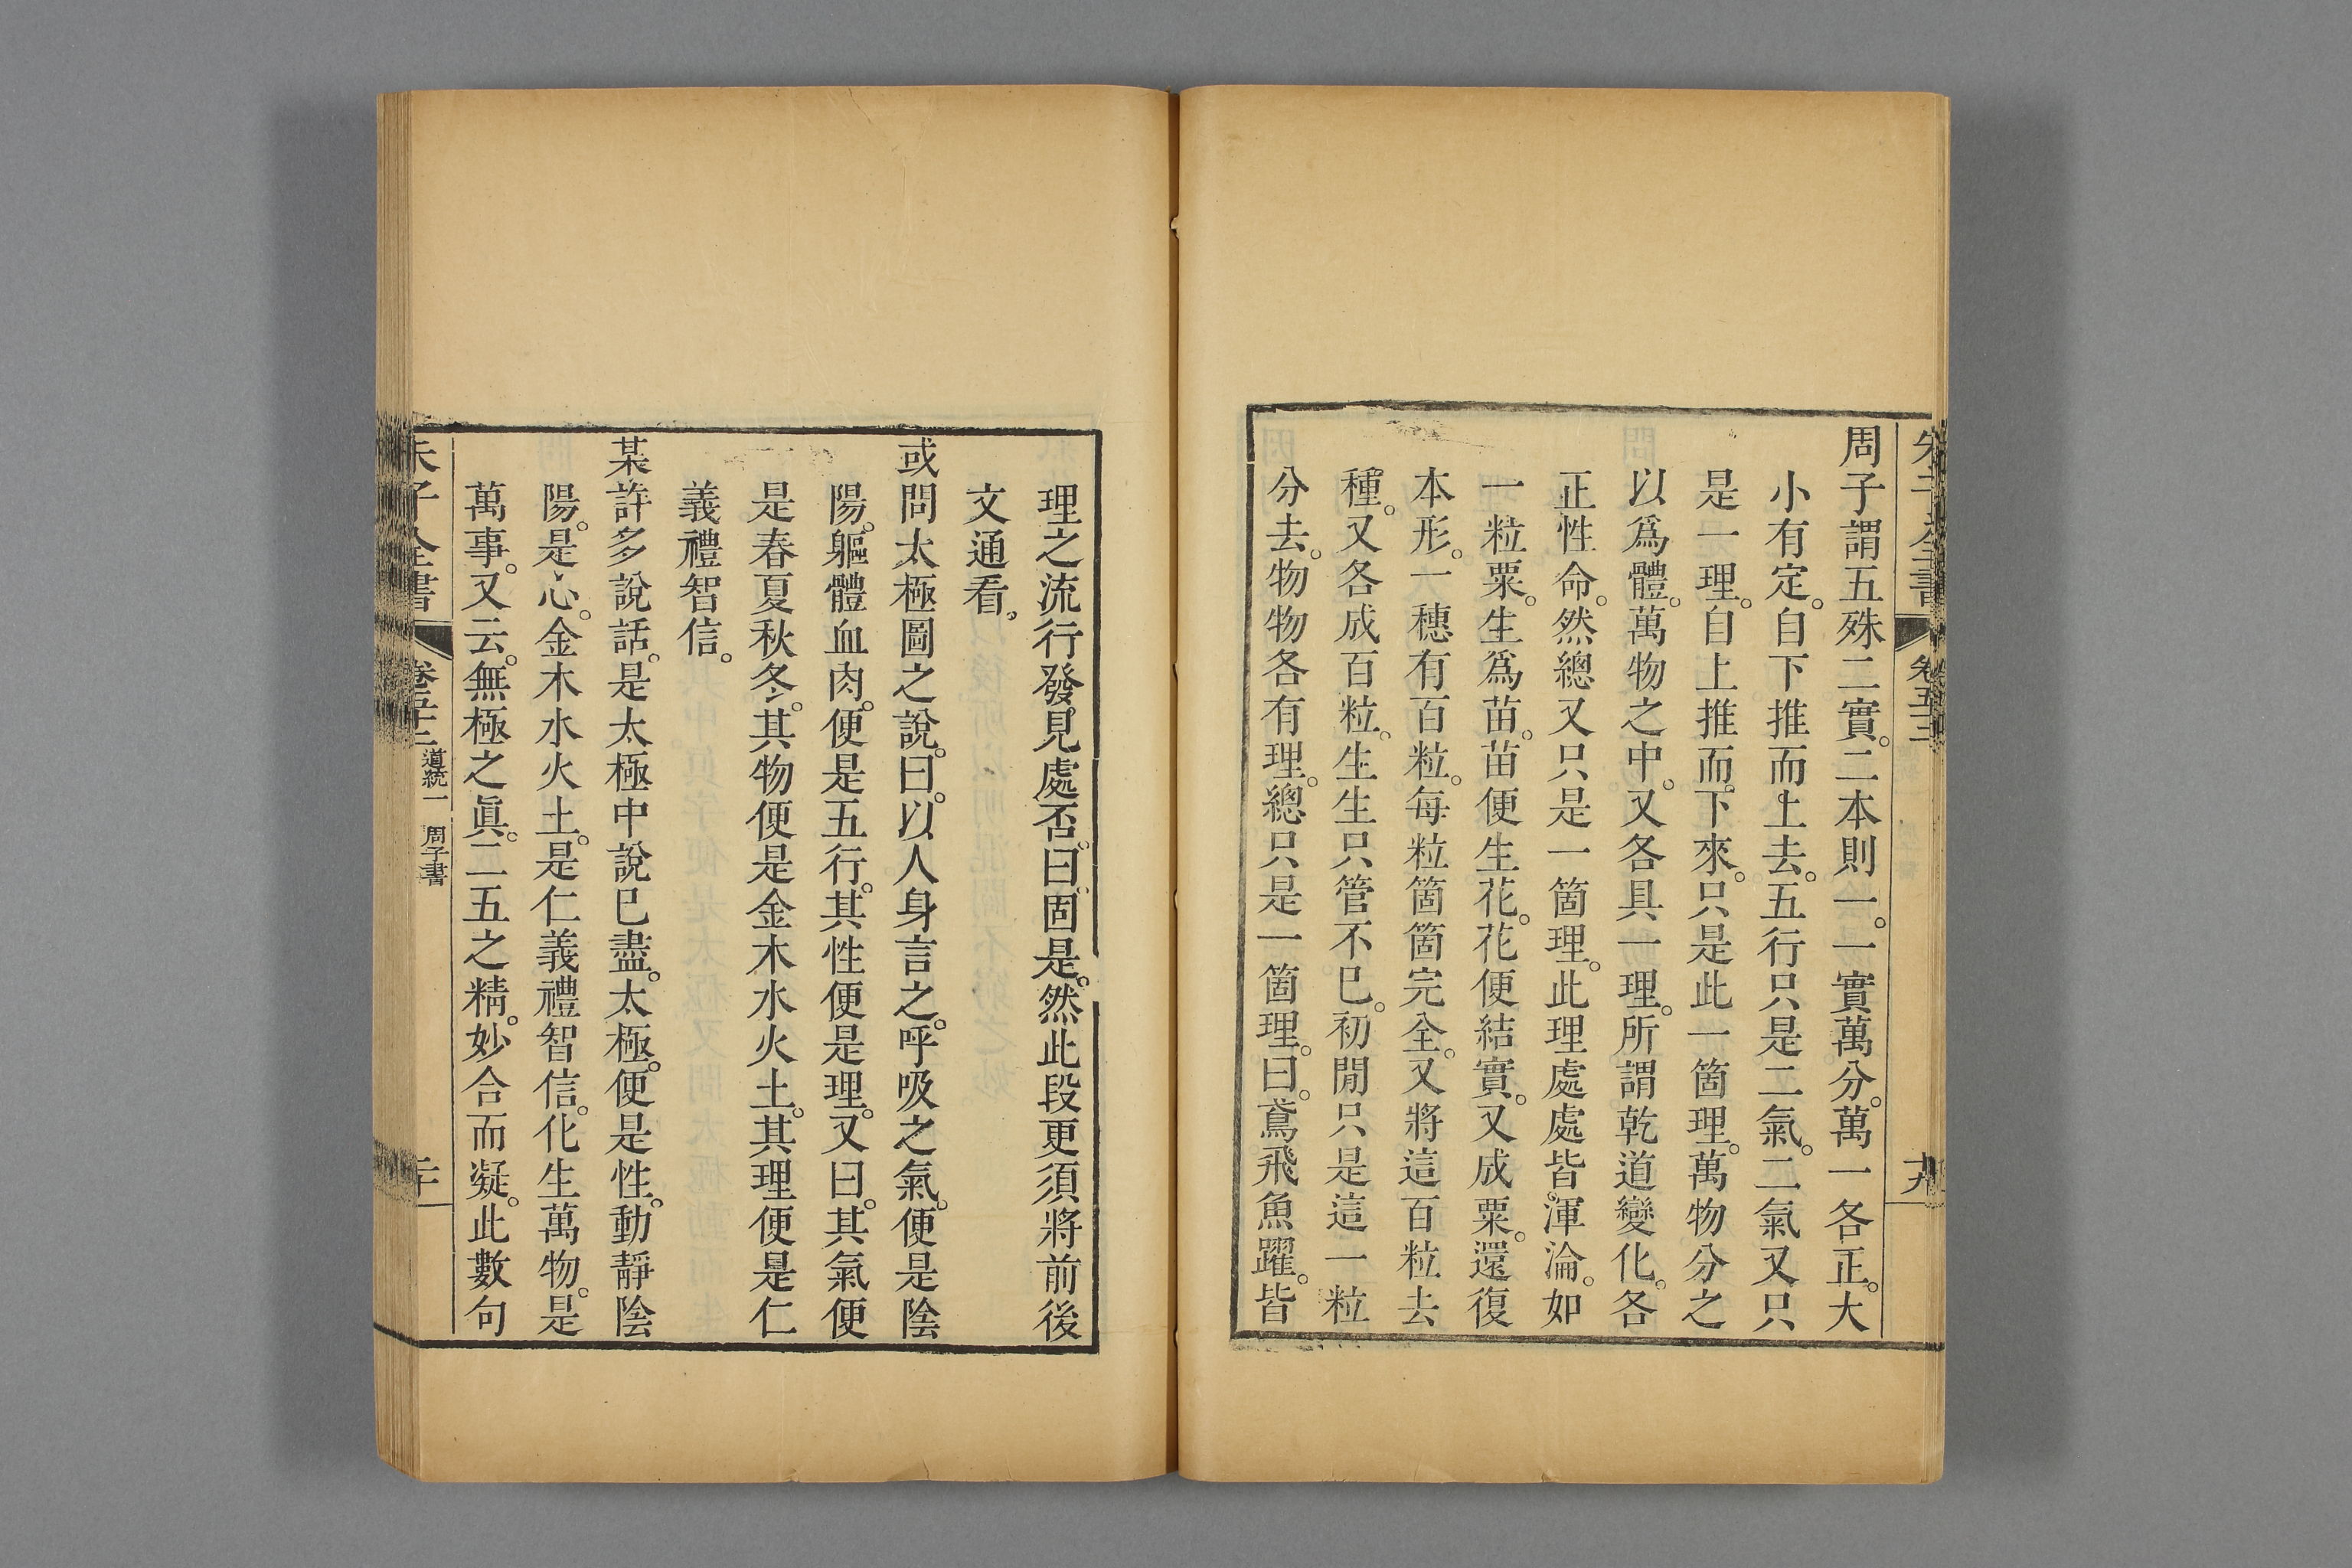 周子謂五殊二實。二本則一。一實萬分。萬一各正。大
小有定。自下推而上去。五行只是二氣。二氣又只
是一理。自上推而下來。只是此一箇理。萬物分之
以爲體。萬物之中。又各具一理。所謂乾道變化。各
正性命。然總又只是一箇理。此理處處皆渾淪。如
一粒粟。生爲苗。苗便生花。花便結實。又成粟。還復
本形。一穗有百粒。每粒箇箇完全。又將這百粒去
種。又各成百粒。生生只管不已。初閒只是這一粒
分去。物物各有理。總只是一箇理。曰。鳶飛魚躍。皆
理之流行發見處否。曰。固是。然此段更須將前後
文通看。
或問太極圖之說。曰。以人身言之。呼吸之氣。便是陰
陽。軀體血肉。便是五行。其性便是理。又曰。其氣便
是春夏秋冬。其物便是金木水火土。其理便是仁
義禮智信。
某許多說話。是太極中說已盡。太極。便是性。動靜陰
陽。是心。金木水火土。是仁義禮智信。化生萬物。是
萬事。又云。無極之眞。二五之精。妙合而凝。此數句
朱子全書
卷五十二
道統一 周子書
二十